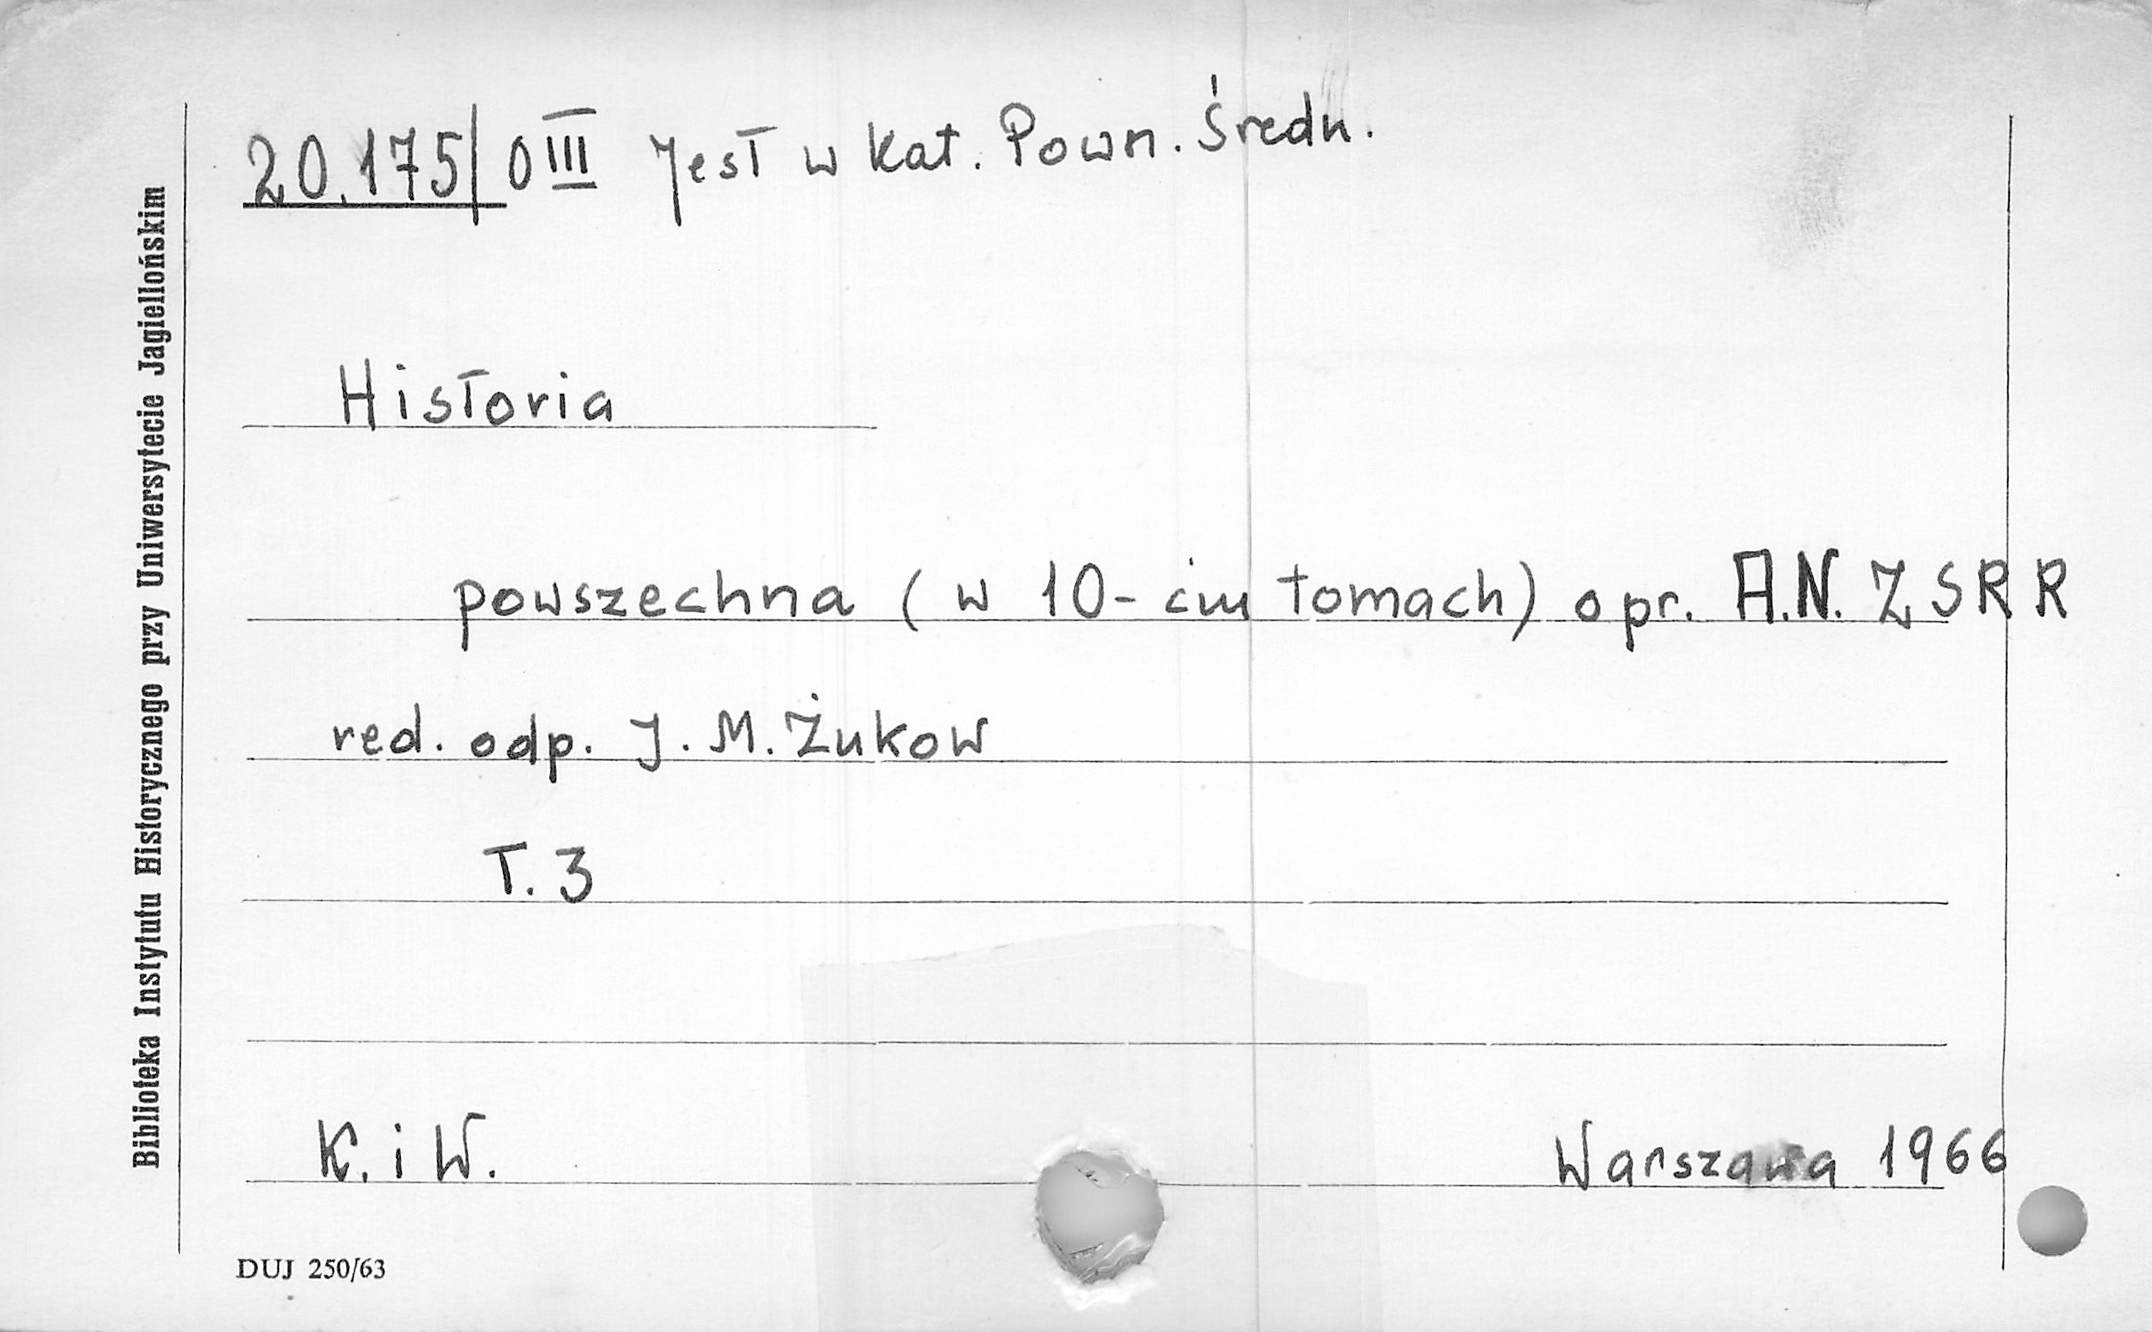 20.175/0 III Jest w kat. Powsz. Średn.
Historia
powszechna (w 10-ciu tomach) opr. A.N. ZSRR
red. odp. J. M. Żukow
T. 3
K. i W.
Warszawa 1966
DUJ 250/63
Biblioteka Instytutu Historycznego przy Uniwersytecie Jagiellońskim